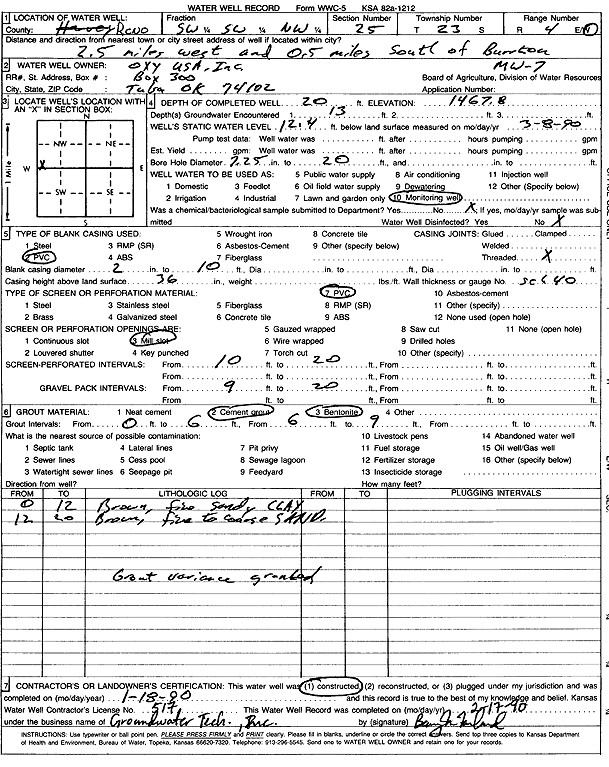 WATER WELL RECORD Form WWC-5 KSA 82a-1212
1 LOCATION OF WATER WELL: Fraction Section Number Township Number Range Number
County: Harvey Reno SW ¼ SW ¼ NW ¼ 25 T 23 S R 4 E/W
Distance and direction from nearest town or city street address of well if located within city?
2.5 miles west and 0.5 miles South of Burrton
2 WATER WELL OWNER: OXY USA, Inc. MW-7
RR#, St. Address, Box # : Box 300 Board of Agriculture, Division of Water Resources
City, State, ZIP Code : Tulsa OK 74102 Application Number:
3 LOCATE WELL'S LOCATION WITH AN "X" IN SECTION BOX:
N
NW NE
W X E
SW SE
S
1 Mile
4 DEPTH OF COMPLETED WELL 20 ft. ELEVATION: 1467.8
Depth(s) Groundwater Encountered 1. 13 ft. 2. ft. 3. ft.
WELL'S STATIC WATER LEVEL 12.4 ft. below land surface measured on mo/day/yr 3-8-90
Pump test data: Well water was ft. after hours pumping gpm
Est. Yield gpm: Well water was ft. after hours pumping gpm
Bore Hole Diameter 7.25 in. to 20 ft., and in. to ft.
WELL WATER TO BE USED AS: 5 Public water supply 8 Air conditioning 11 Injection well
1 Domestic 3 Feedlot 6 Oil field water supply 9 Dewatering 12 Other (Specify below)
2 Irrigation 4 Industrial 7 Lawn and garden only 10 Monitoring well
Was a chemical/bacteriological sample submitted to Department? Yes No X; If yes, mo/day/yr sample was submitted Water Well Disinfected? Yes No X
5 TYPE OF BLANK CASING USED: 5 Wrought iron 8 Concrete tile CASING JOINTS: Glued Clamped
1 Steel 3 RMP (SR) 6 Asbestos-Cement 9 Other (specify below) Welded
2 PVC 4 ABS 7 Fiberglass Threaded X
Blank casing diameter 2 in. to 10 ft., Dia in. to ft., Dia in. to ft.
Casing height above land surface 36 in., weight lbs./ft. Wall thickness or gauge No. sch 40
TYPE OF SCREEN OR PERFORATION MATERIAL: 7 PVC 10 Asbestos-cement
1 Steel 3 Stainless steel 5 Fiberglass 8 RMP (SR) 11 Other (specify)
2 Brass 4 Galvanized steel 6 Concrete tile 9 ABS 12 None used (open hole)
SCREEN OR PERFORATION OPENINGS ARE: 5 Gauzed wrapped 8 Saw cut 11 None (open hole)
1 Continuous slot 3 Mill slot 6 Wire wrapped 9 Drilled holes
2 Louvered shutter 4 Key punched 7 Torch cut 10 Other (specify)
SCREEN-PERFORATED INTERVALS: From 10 ft. to 20 ft., From ft. to ft.
From ft. to ft., From ft. to ft.
GRAVEL PACK INTERVALS: From 9 ft. to 20 ft., From ft. to ft.
From ft. to ft., From ft. to ft.
6 GROUT MATERIAL: 1 Neat cement 2 Cement grout 3 Bentonite 4 Other
Grout Intervals: From 0 ft. to 6 ft., From 6 ft. to 9 ft., From ft. to ft.
What is the nearest source of possible contamination: 10 Livestock pens 14 Abandoned water well
1 Septic tank 4 Lateral lines 7 Pit privy 11 Fuel storage 15 Oil well/Gas well
2 Sewer lines 5 Cess pool 8 Sewage lagoon 12 Fertilizer storage 16 Other (specify below)
3 Watertight sewer lines 6 Seepage pit 9 Feedyard 13 Insecticide storage
Direction from well? How many feet?
FROM TO LITHOLOGIC LOG FROM TO PLUGGING INTERVALS
0 12 Brown, fine sandy CLAY
12 20 Brown, fine to coarse SAND.
Grout variance granted
7 CONTRACTOR'S OR LANDOWNER'S CERTIFICATION: This water well was (1) constructed, (2) reconstructed, or (3) plugged under my jurisdiction and was
completed on (mo/day/year) 1-18-90 and this record is true to the best of my knowledge and belief. Kansas
Water Well Contractor's License No. 517 This Water Well Record was completed on (mo/day/yr) 2-17-90
under the business name of Groundwater Tech. Inc. by (signature)
INSTRUCTIONS: Use typewriter or ball point pen. PLEASE PRESS FIRMLY and PRINT clearly. Please fill in blanks, underline or circle the correct answers. Send top three copies to Kansas Department
of Health and Environment, Bureau of Water, Topeka, Kansas 66620-7320. Telephone: 913-296-5545. Send one to WATER WELL OWNER and retain one for your records.